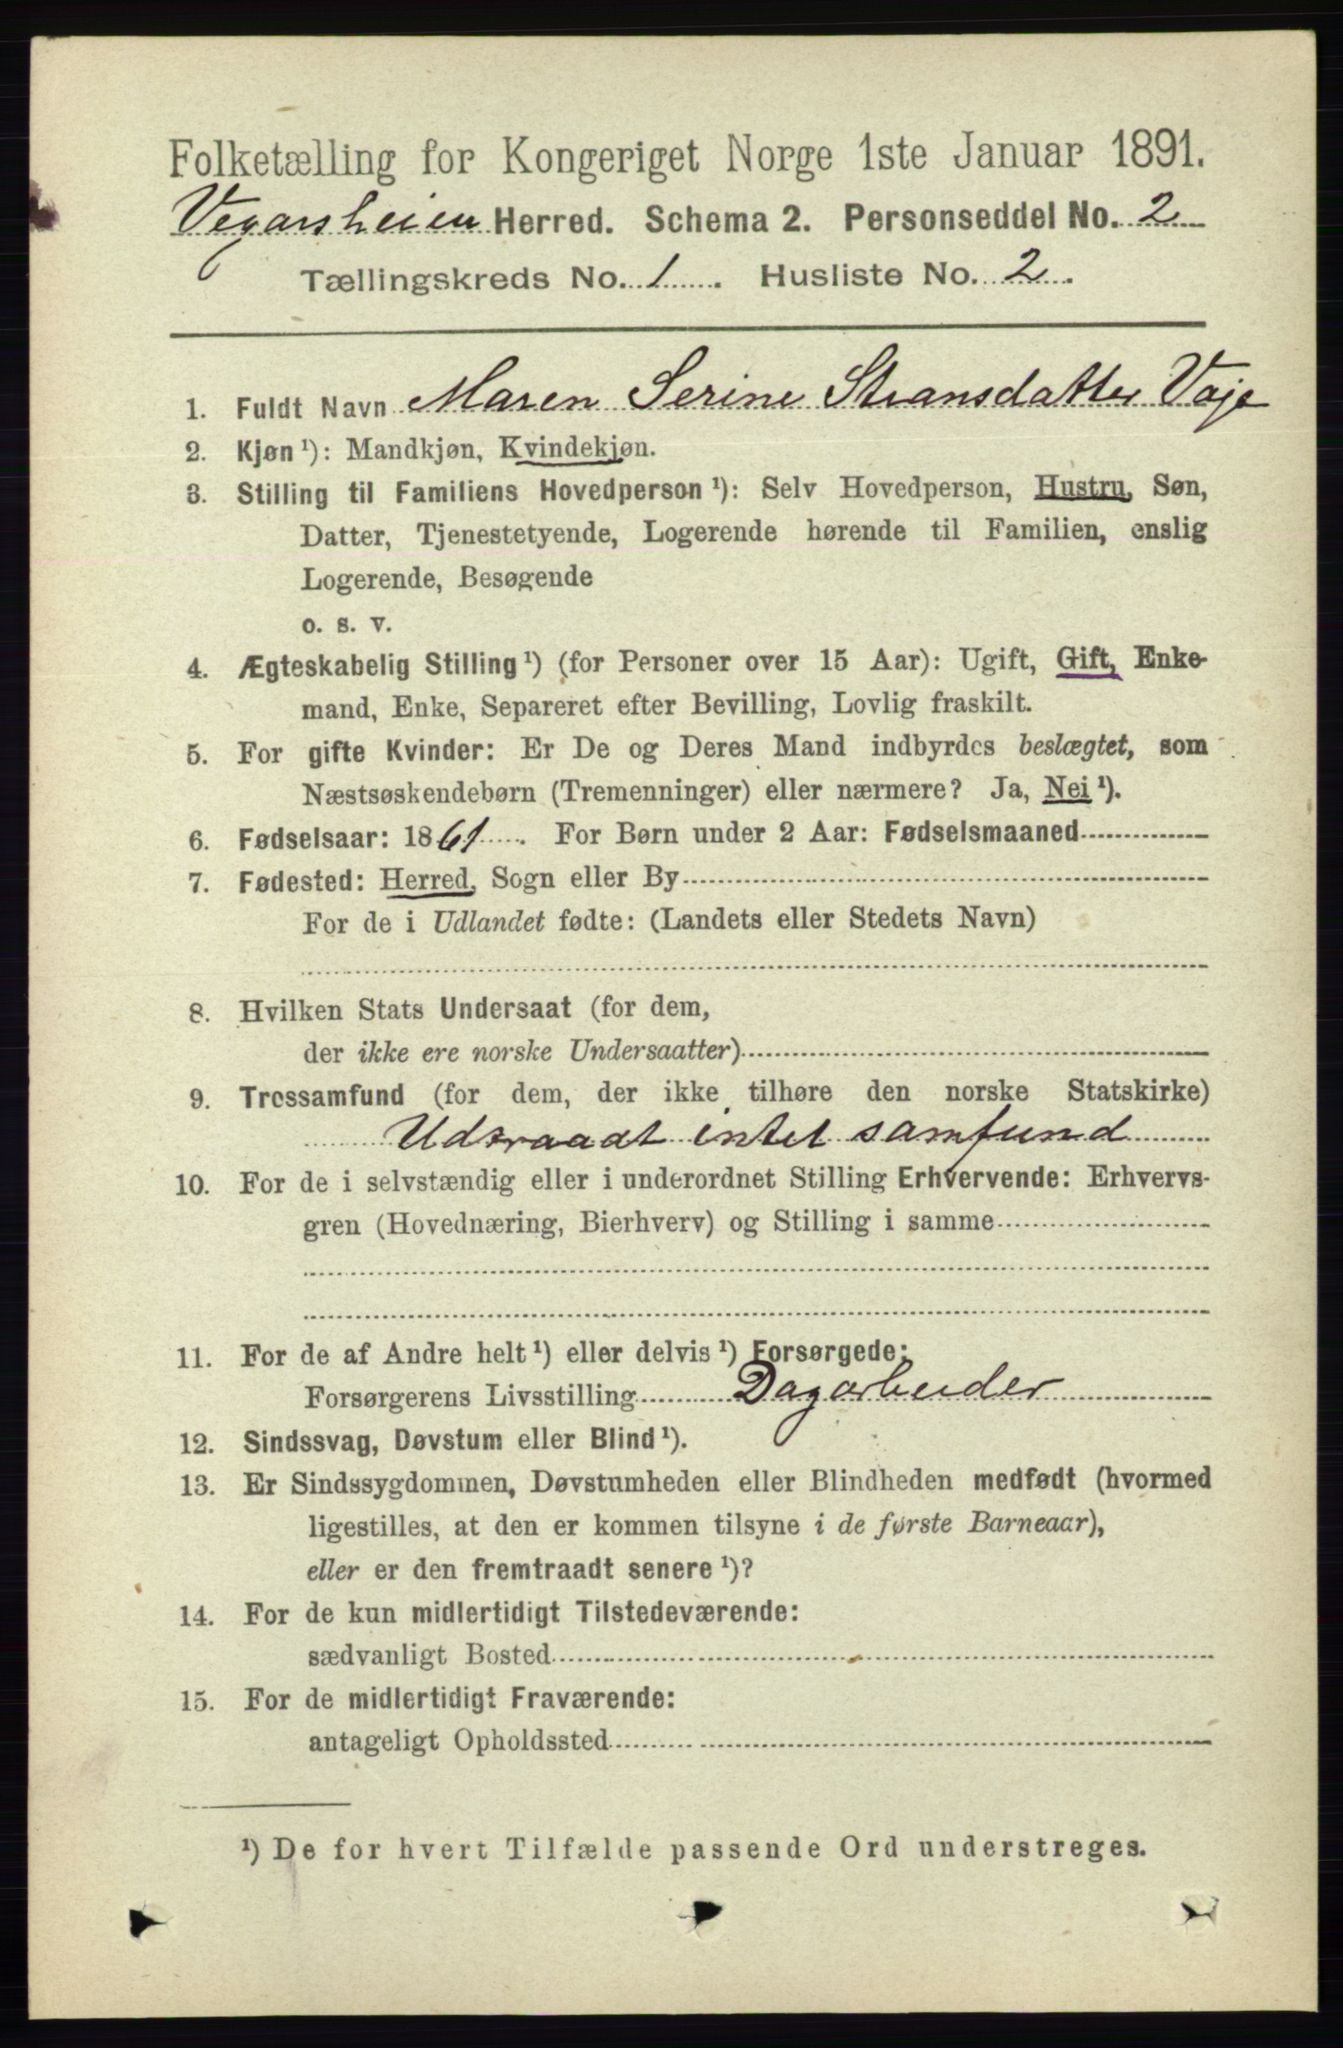 Folketælling for Kongeriget Norge 1ste Januar 1891.
Vegarsheien Herred. Schema 2. Personseddel No. 2
Tællingskreds No. 1. Husliste No. 2.
1. Fuldt Navn Maren Serine Stiansdatter Vaje
2. Kjøn ¹): Mandkjøn, Kvindekjøn.
3. Stilling til Familiens Hovedperson ¹): Selv Hovedperson, Hustru, Søn,
Datter, Tjenestetyende, Logerende hørende til Familien, enslig
Logerende, Besøgende
o. s. v.
4. Ægteskabelig Stilling ¹) (for Personer over 15 Aar): Ugift, Gift, Enke-
mand, Enke, Separeret efter Bevilling, Lovlig fraskilt.
5. For gifte Kvinder: Er De og Deres Mand indbyrdes beslægtet, som
Næstsøskendebørn (Tremenninger) eller nærmere? Ja, Nei ¹).
6. Fødselsaar: 1861. For Børn under 2 Aar: Fødselsmaaned
7. Fødested: Herred, Sogn eller By
For de i Udlandet fødte: (Landets eller Stedets Navn)
8. Hvilken Stats Undersaat (for dem,
der ikke ere norske Undersaatter)
9. Trossamfund (for dem, der ikke tilhøre den norske Statskirke)
Udtraadt intet samfund
10. For de i selvstændig eller i underordnet Stilling Erhvervende: Erhvervs-
gren (Hovednæring, Bierhverv) og Stilling i samme
11. For de af Andre helt ¹) eller delvis ¹) Forsørgede:
Forsørgerens Livsstilling Dagarbeider
12. Sindssvag, Døvstum eller Blind ¹).
13. Er Sindssygdommen, Døvstumheden eller Blindheden medfødt (hvormed
ligestilles, at den er kommen tilsyne i de første Barneaar),
eller er den fremtraadt senere ¹)?
14. For de kun midlertidigt Tilstedeværende:
sædvanligt Bosted
15. For de midlertidigt Fraværende:
antageligt Opholdssted
¹) De for hvert Tilfælde passende Ord understreges.